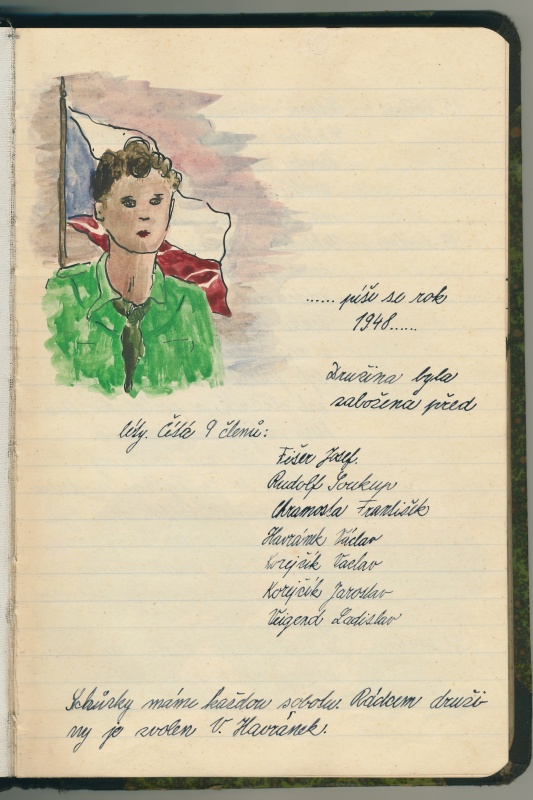 ...... píše se rok
1948......
Družina byla
založena před
léty. Čítá 9 členů:
Fišer Josef.
Rudolf Soukup
Chramosta František
Havránek Václav
Korejčík Vaclav
Korejčík Jaroslav
Veigend Ladislav
Schůzky máme každou sobotu. Rádcem druži-
ny je zvolen V. Havránek.